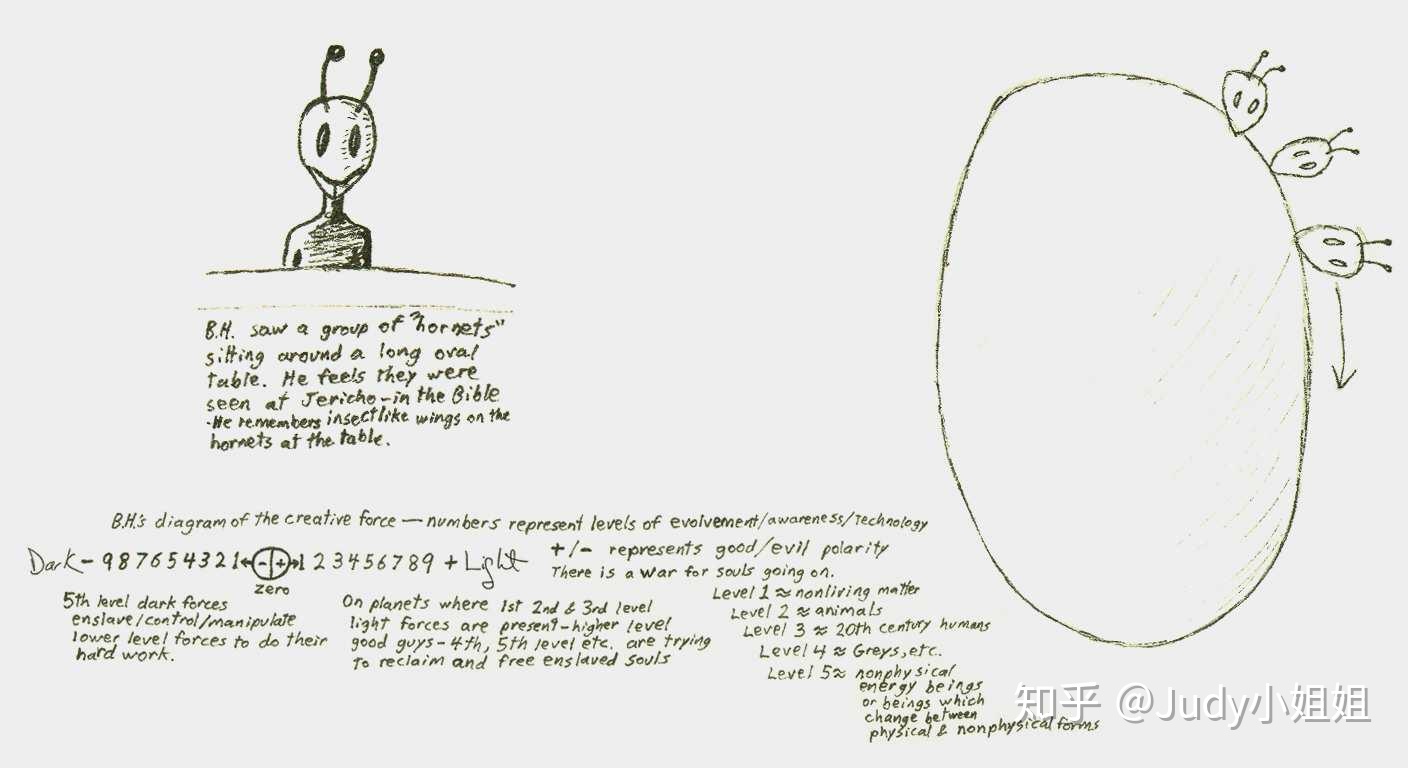 B.H. saw a group of "hornets"
sitting around a long oval
table. He feels they were
seen at Jericho-in the Bible
-He remembers insectlike wings on the
hornets at the table.
B.H.'s diagram of the creative force — numbers represent levels of evolvement/awareness/technology
Dark - 9 8 7 6 5 4 3 2 1 ← - + → 1 2 3 4 5 6 7 8 9 + Light
zero
5th level dark forces
enslave/control/manipulate
lower level forces to do their
hard work.
On planets where 1st 2nd & 3rd level
light forces are present-higher level
good guys-4th, 5th level etc. are trying
to reclaim and free enslaved souls
+/- represents good/evil polarity
There is a war for souls going on.
Level 1 ≈ nonliving matter
Level 2 ≈ animals
Level 3 ≈ 20th century humans
Level 4 ≈ Greys, etc.
Level 5 ≈ nonphysical
energy beings
or beings which
change between
physical & nonphysical forms
知乎 @Judy小姐姐